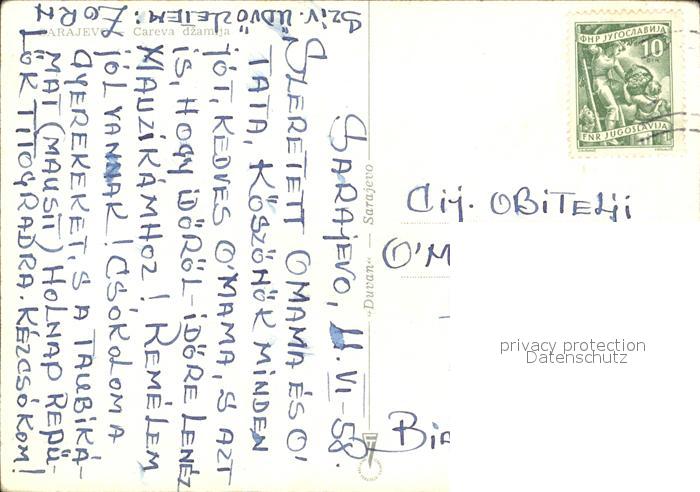 SARAJEVO, 11. VI - 58.
SZERETETT OMAMA ÉS O'
TATA, KÖSZÖNÖK MINDEN
JÓT, KEDVES O'MAMA, S AZT
IS, HOGY IDŐRŐL-IDŐRE LENÉZ
MAUZIKÁMHOZ! REMÉLEM
JÓL VANNAK! CSÓKOLOM A
GYEREKEKET, S A TAUBIKÁ-
MAT (MAUSIT) HOLNAP REPÜ-
LÖK TITOGRADRA. KÉZCSÓKOM!
SZIV. ÜDVÖZLETEM:
ZORZ
SARAJEVO Careva džamija
„Duvan“ — Sarajevo
ФНР ЈУГОСЛАВИЈА
10
DIN
FNR JUGOSLAVIJA
Cij. OBITELJI
O'M
privacy protection
Datenschutz